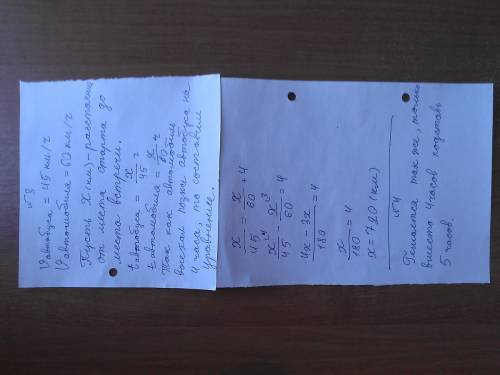 №3
Vавтобуса = 45 км/ч
Vавтомобиля = 60 км/ч
Пусть x (км) - расстояние
от места старта до
места встречи.
t автобуса = x/45 ч
t автомобиля = x/60 ч
Так как автомобиль
выехал позже автобуса на
4 часа, то составим
уравнение.
x/45 = x/60 + 4
x^4/45 - x^3/60 = 4
4x - 3x/180 = 4
x/180 = 4
x = 720 (км)
№4
Решается так же, только
вместо 4 часов подставь
5 часов.